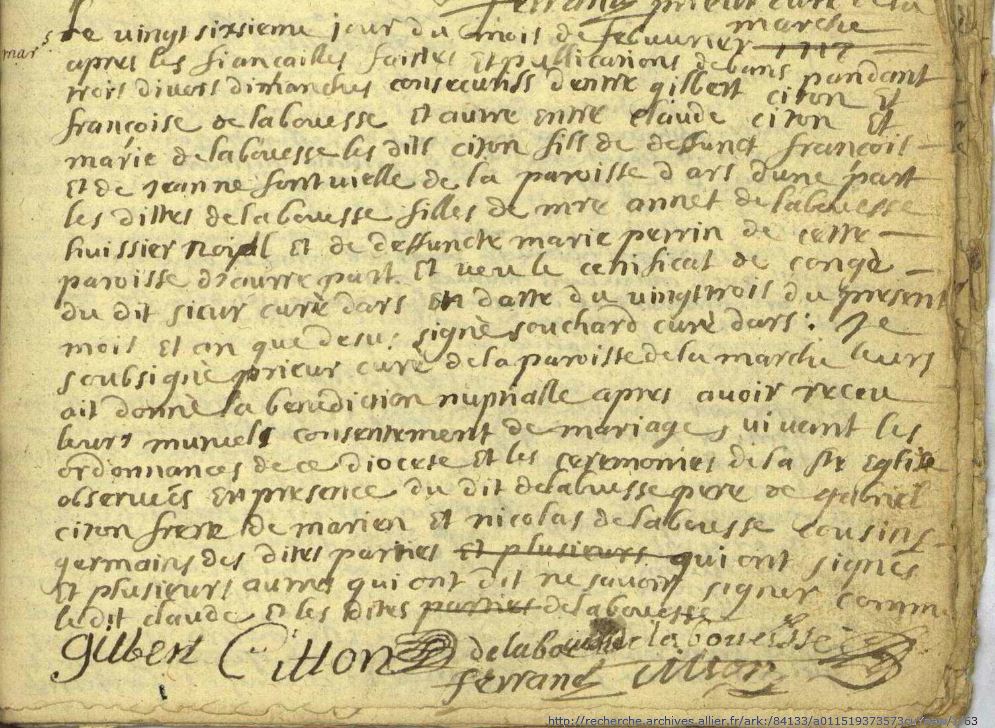 ferrand prieur curé de la
marche
mars
Le vingt sixsieme jour du mois de febuurier 1717
apres les fiancailles faittes Et publications de bans pandant
trois divers dimanches consecutifs d'entre gilbert citon Et
françoise delabouesse Et autre entre claude citon Et
marie delabouesse les dits citon fils de deffunct françois
Et de jeanne fontvielle de la paroisse d'ars d'une part
les dittes delabouesse filles de mre annet delabouesse
huissier royal Et de deffuncte marie perrin de cette
paroisse d'autre part. Et veu le certificat de congé
du dit sieur curé dars En datte du vingttrois du present
mois Et an que desus, signé souchard curé dars: Je
soubsigné prieur curé de la paroisse de la marche leurs
ait donné la benediction nuptialle apres avoir receu
leurs mutuels consentement de mariage, suivant les
ordonnances de ce diocese Et les ceremonies de la Ste Eglise
observées En presence du dit delabuesse pere de gabriel
citon frere de marien Et nicolas delabouesse cousins
germains des dites parties Et plusieurs qui ont signés
Et plusieurs autres qui ont dit ne savoir signer comme
le dit claude Et les dites parties delabouesse
gilbert Citton delabouesse delabouesse
ferrand citton
http://recherche.archives.allier.fr/ark:/84133/a011519373573